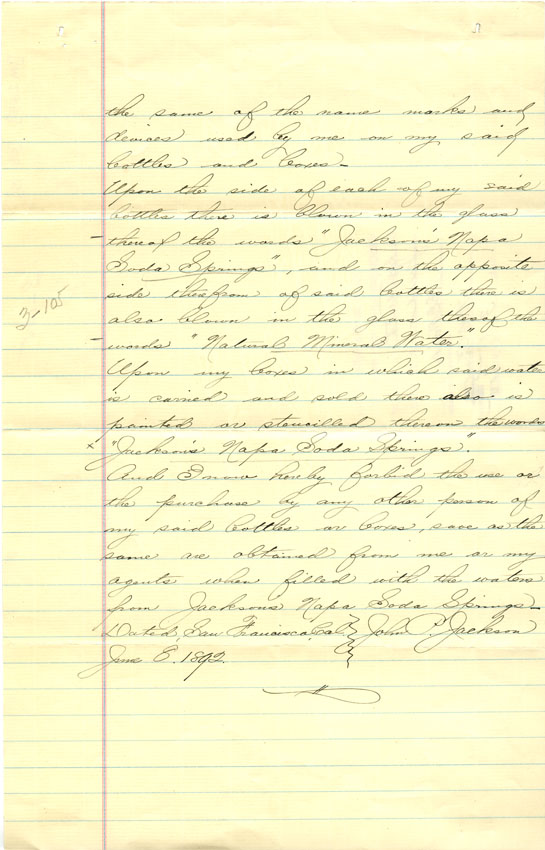 the same of the name marks and
devices used by me on my said
bottles and boxes—
Upon the side of each of my said
bottles there is blown in the glass
thereof the words "Jackson's Napa
Soda Springs", and on the opposite
side therefrom of said bottles there is
also blown in the glass thereof the
words "Natural Mineral Water."
Upon my boxes in which said water
is carried and sold there also is
painted or stencilled thereon the words
"Jackson's Napa Soda Springs".
And I now hereby forbid the use or
the purchase by any other person of
my said bottles or boxes, save as the
same are obtained from me or my
agents when filled with the waters
from Jacksons Napa Soda Springs—
Dated, San Francisco, Cal. John P. Jackson
1892.
3-105